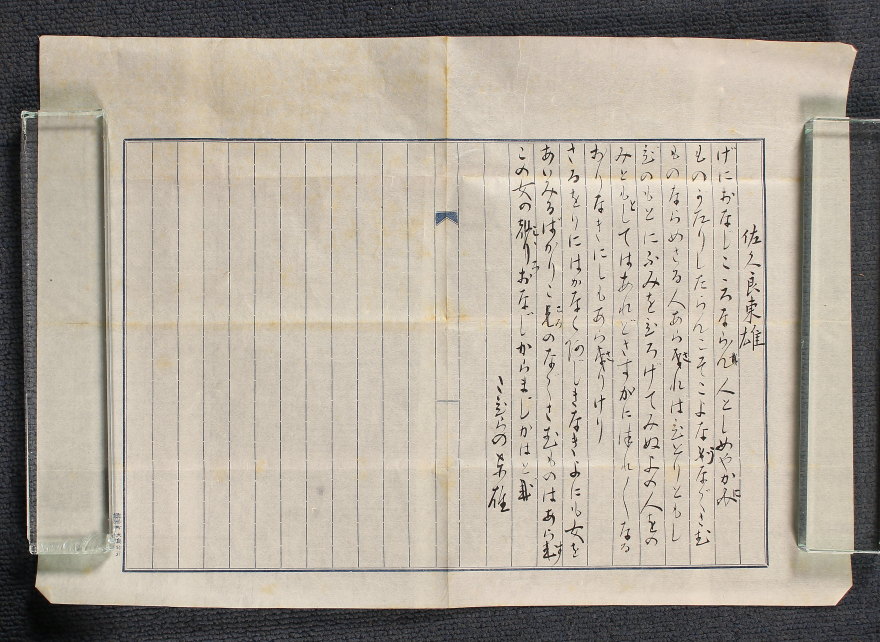 佐久良東雄
げにおなじこゝろならん人としめやかに
ものがたりしたらんこそこよなうなぐさむ
ものならめさる人あらざればひとりともし
びのもとにふみをひろげてみぬよの人を
みともとしてはあれどさすがにつれ〳〵なる
おりなきにしもあらざりけり
さるをりにはかなくあぢきなきよにも女を
あいみるばかりこゝろのなぐさむものはあらず
この女のおなじからまじかはと
さくらの東雄